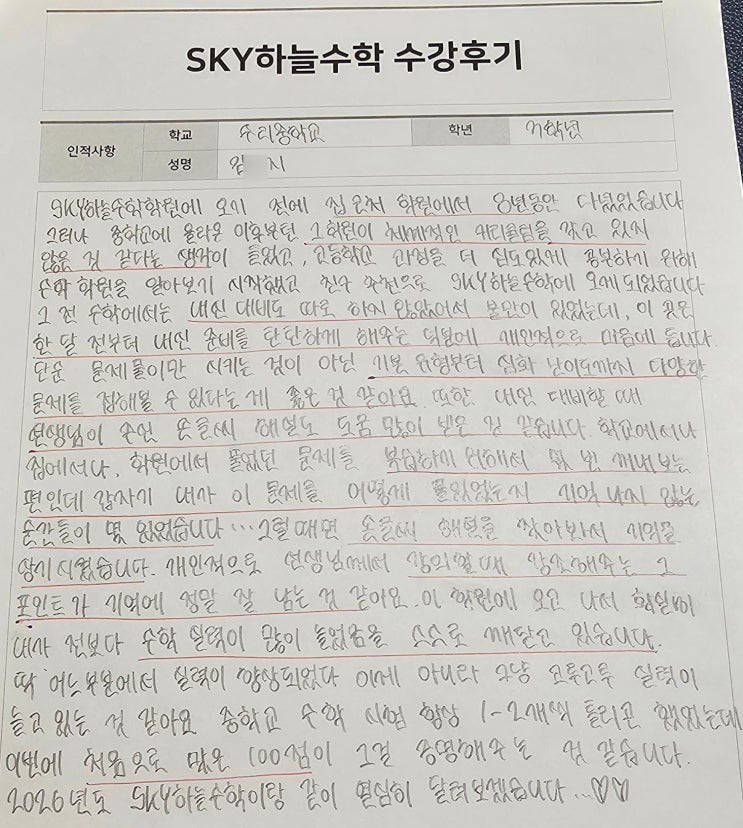 SKY하늘수학 수강후기
인적사항 학교 수리중학교 학년 기학년
성명 김 지
SKY하늘수학학원에 오기 전에 집 근처 학원에서 8년동안 다녔었습니다
그러나 중학교에 올라온 이후부턴 그 학원이 체계적인 커리큘럼을 갖고 있지
않은 것 같다는 생각이 들었고, 고등학교 과정을 더 심도있게 공부하기 위해
수학 학원을 알아보기 시작했고 친구 추천으로 SKY하늘수학에 오게 되었습니다
그 전 수학에서는 내신 대비도 따로 하지 않았어서 불만이 있었는데, 이 곳은
한 달 전부터 내신 준비를 탄탄하게 해주는 덕분에 개인적으로 마음에 듭니다.
단순 문제풀이만 시키는 것이 아닌 기본 유형부터 심화 난이도까지 다양한
문제를 접해볼 수 있다는게 좋은 것 같아요. 또한, 내신 대비할 때
선생님이 주신 손글씨 해설도 도움 많이 받은 것 같습니다. 학교에서나
집에서나, 학원에서 풀었던 문제를 복습하기 위해서 몇 번 꺼내보는
편인데 갑자기 내가 이 문제를 어떻게 풀었었는지 기억 나지 않는
순간들이 몇 있었습니다... 그럴 때면 손글씨 해설을 찾아봐서 기억을
상기시켰습니다. 개인적으로 선생님께서 강의할 때 강조해주는 그
포인트가 기억에 정말 잘 남는 것 같아요. 이 학원에 오고 나서 확실히
내가 전보다 수학 실력이 많이 늘었음을 스스로 깨닫고 있습니다.
딱 어느부분에서 실력이 향상되었다 이게 아니라 그냥 고루고루 실력이
늘고 있는 것 같아요 중학교 수학 시험 항상 1-2개씩 틀리곤 했었는데
이번에 처음으로 맞은 100점이 그걸 증명해주는 것 같습니다.
2026년도 SKY하늘수학이랑 같이 열심히 달려보겠습니다...♡♡